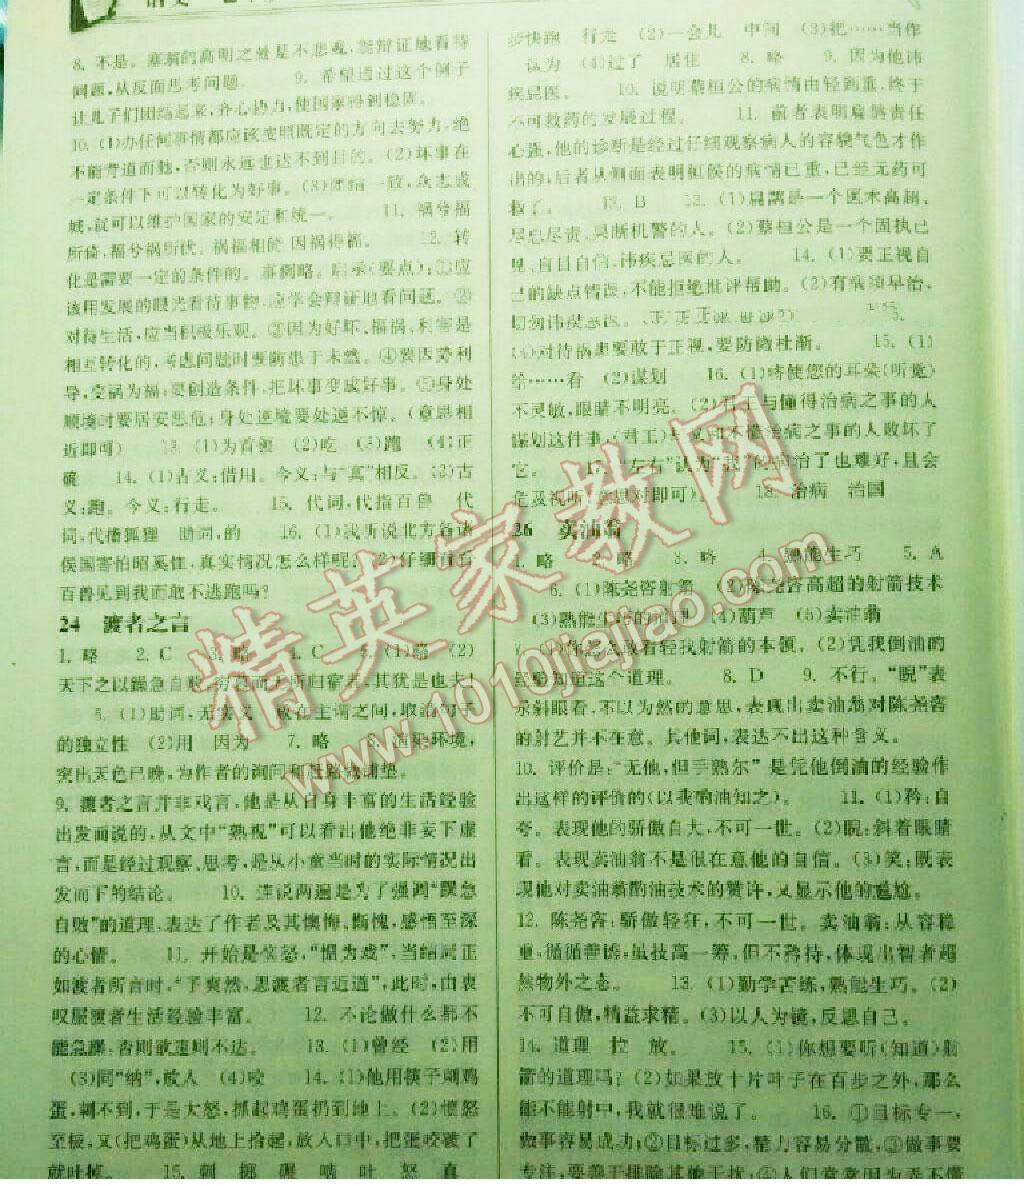 8. 不是。塞翁的高明之处是不悲观,能辩证地看待
问题,从反面思考问题。 9. 希望通过这个例子
让儿子们团结起来,齐心协力,使国家得到稳固。
10. (1)办任何事情都应该按照既定的方向去努力,绝
不能背道而驰,否则永远也达不到目的。(2)坏事在
一定条件下可以转化为好事。(3)团结一致,众志成
城,就可以维护国家的安定和统一。 11. 祸兮福
所倚,福兮祸所伏。祸福相依 因祸得福。 12. 转
化是需要一定的条件的。事例略。启示(要点):①应
该用发展的眼光看待事物,应学会辩证地看问题。②
对待生活,应当积极乐观。③因为好坏、福祸、利害是
相互转化的,考虑问题时要防患于未然。④要因势利
导,变祸为福;要创造条件,把坏事变成好事。⑤身处
顺境时要居安思危;身处逆境要处逆不惊。(意思相
近即可) 13. (1)为首领 (2)吃 (3)跑 (4)正
确 14. (1)古义:借用。今义:与“真”相反。(2)古
义:跑。今义:行走。 15. 代词,代指百兽 代
词,代指狐狸 助词,的 16. (1)我听说北方各诸
侯国害怕昭奚恤,真实情况怎么样呢?
百兽见到我而敢不逃跑吗?
24 渡者之言
1. 略 2. C 3. 略 4. C 5. (1)略 (2)
天下之以躁急自败,穷暮而无所归宿者,其犹是也夫!
6. (1)助词,无实义 放在主谓之间,取消句子
的独立性 (2)用 因为 7. 略 8. 渲染环境,
突出天色已晚,为作者的询问和赶路做铺垫。
9. 渡者之言并非戏言,他是从自身丰富的生活经验
出发而说的,从文中“熟视”可以看出他绝非妄下虚
言,而是经过观察、思考,是从小童当时的实际情况出
发而下的结论。 10. 连说两遍是为了强调“躁急
自败”的道理,表达了作者及其懊悔、惭愧、感悟至深
的心情。 11. 开始是愠怒,“愠为戏”,当结局正
如渡者所言时,“予爽然,思渡者言近道”,此时,由衷
叹服渡者生活经验丰富。 12. 不论做什么都不
能急躁,否则欲速则不达。 13. (1)曾经 (2)用
(3)同“纳”,放入 (4)咬 14. (1)他用筷子刺鸡
蛋,刺不到,于是大怒,抓起鸡蛋扔到地上。(2)愤怒
至极,又(把鸡蛋)从地上拾起,放入口中,把蛋咬破了
就吐掉。 15. 刺 掷 碾 啮 吐 怒 真
步快跑 行走 (2)一会儿 中间 (3)把……当作
认为 (4)过了 居住 8. 略 9. 因为他讳
疾忌医。 10. 说明蔡桓公的病情由轻到重,终于
不可救药的发展过程。 11. 前者表明扁鹊责任
心强,他的诊断是经过仔细观察病人的容貌气色才作
出的,后者从侧面表明桓侯的病情已重,已经无药可
救了。 12. B 13. (1)扁鹊是一个医术高超、
尽忠尽责、果断机警的人。(2)蔡桓公是一个固执己
见、盲目自信、讳疾忌医的人。 14. (1)要正视自
己的缺点错误,不能拒绝批评帮助。(2)有病须早治,
切勿讳疾忌医。
心对待祸患要敢于正视,要防微杜渐。 15. (1)
给……看 (2)谋划 16. (1)将使您的耳朵(听觉)
不灵敏,眼睛不明亮。(2)君王与懂得治病之事的人
谋划这件事,(君王)与又和不懂治病之事的人败坏了
它。 17. “左右”认为“我”的病治了也难好,且会
危及视听(意思对即可)。 18. 治病 治国
26 卖油翁
1. 略 2. 略 3. 略 4. 熟能生巧 5. A
6. (1)陈尧咨射箭 (2)陈尧咨高超的射箭技术
(3)熟能生巧的道理 (4)葫芦 (5)卖油翁
7. (1)你怎么敢看轻我射箭的本领。(2)凭我倒油的
经验知道这个道理。 8. D 9. 不行。“睨”表
示斜眼看,不以为然的意思,表现出卖油翁对陈尧咨
的射艺并不在意。其他词,表达不出这种含义。
10. 评价是:“无他,但手熟尔”是凭他倒油的经验作
出这样的评价的(以我酌油知之)。 11. (1)矜:自
夸。表现他的骄傲自大,不可一世。(2)睨:斜着眼睛
看。表现卖油翁不是很在意他的自信。(3)笑:既表
现他对卖油翁酌油技术的赞许,又显示他的尴尬。
12. 陈尧咨:骄傲轻狂,不可一世。卖油翁:从容稳
重,循循善诱;虽技高一筹,但不矜持,体现出智者超
然物外之态。 13. (1)勤学苦练,熟能生巧。(2)
不可自傲,精益求精。(3)以人为镜,反思自己。
14. 道理 拉 放。 15. (1)你想要听(知道)射
箭的道理吗?(2)如果放十片叶子在百步之外,那么
能不能射中,我就很难说了。 16. ①目标专一,
做事容易成功;②目标过多,精力容易分散;③做事要
专注,要善于排除其他干扰;④人们常常因为弄不懂
精英家教网
www.1010jiajiao.com